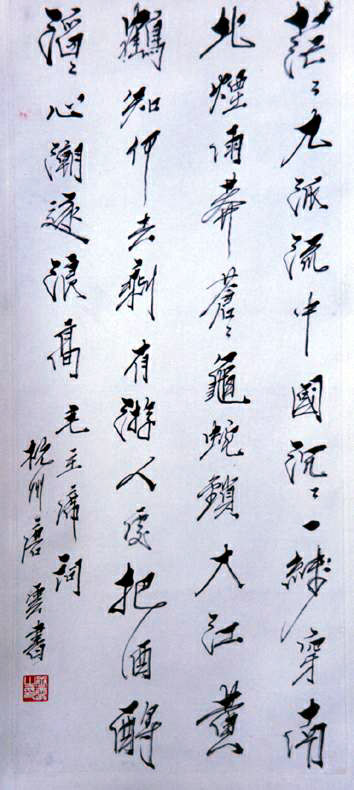 茫〻九派流中國沉〻一綫穿南
北煙雨莽蒼〻龜蛇鎖大江黃
鶴知何去剩有游人處把酒酹
滔〻心潮逐浪高 毛主席詞
杭州唐雲書